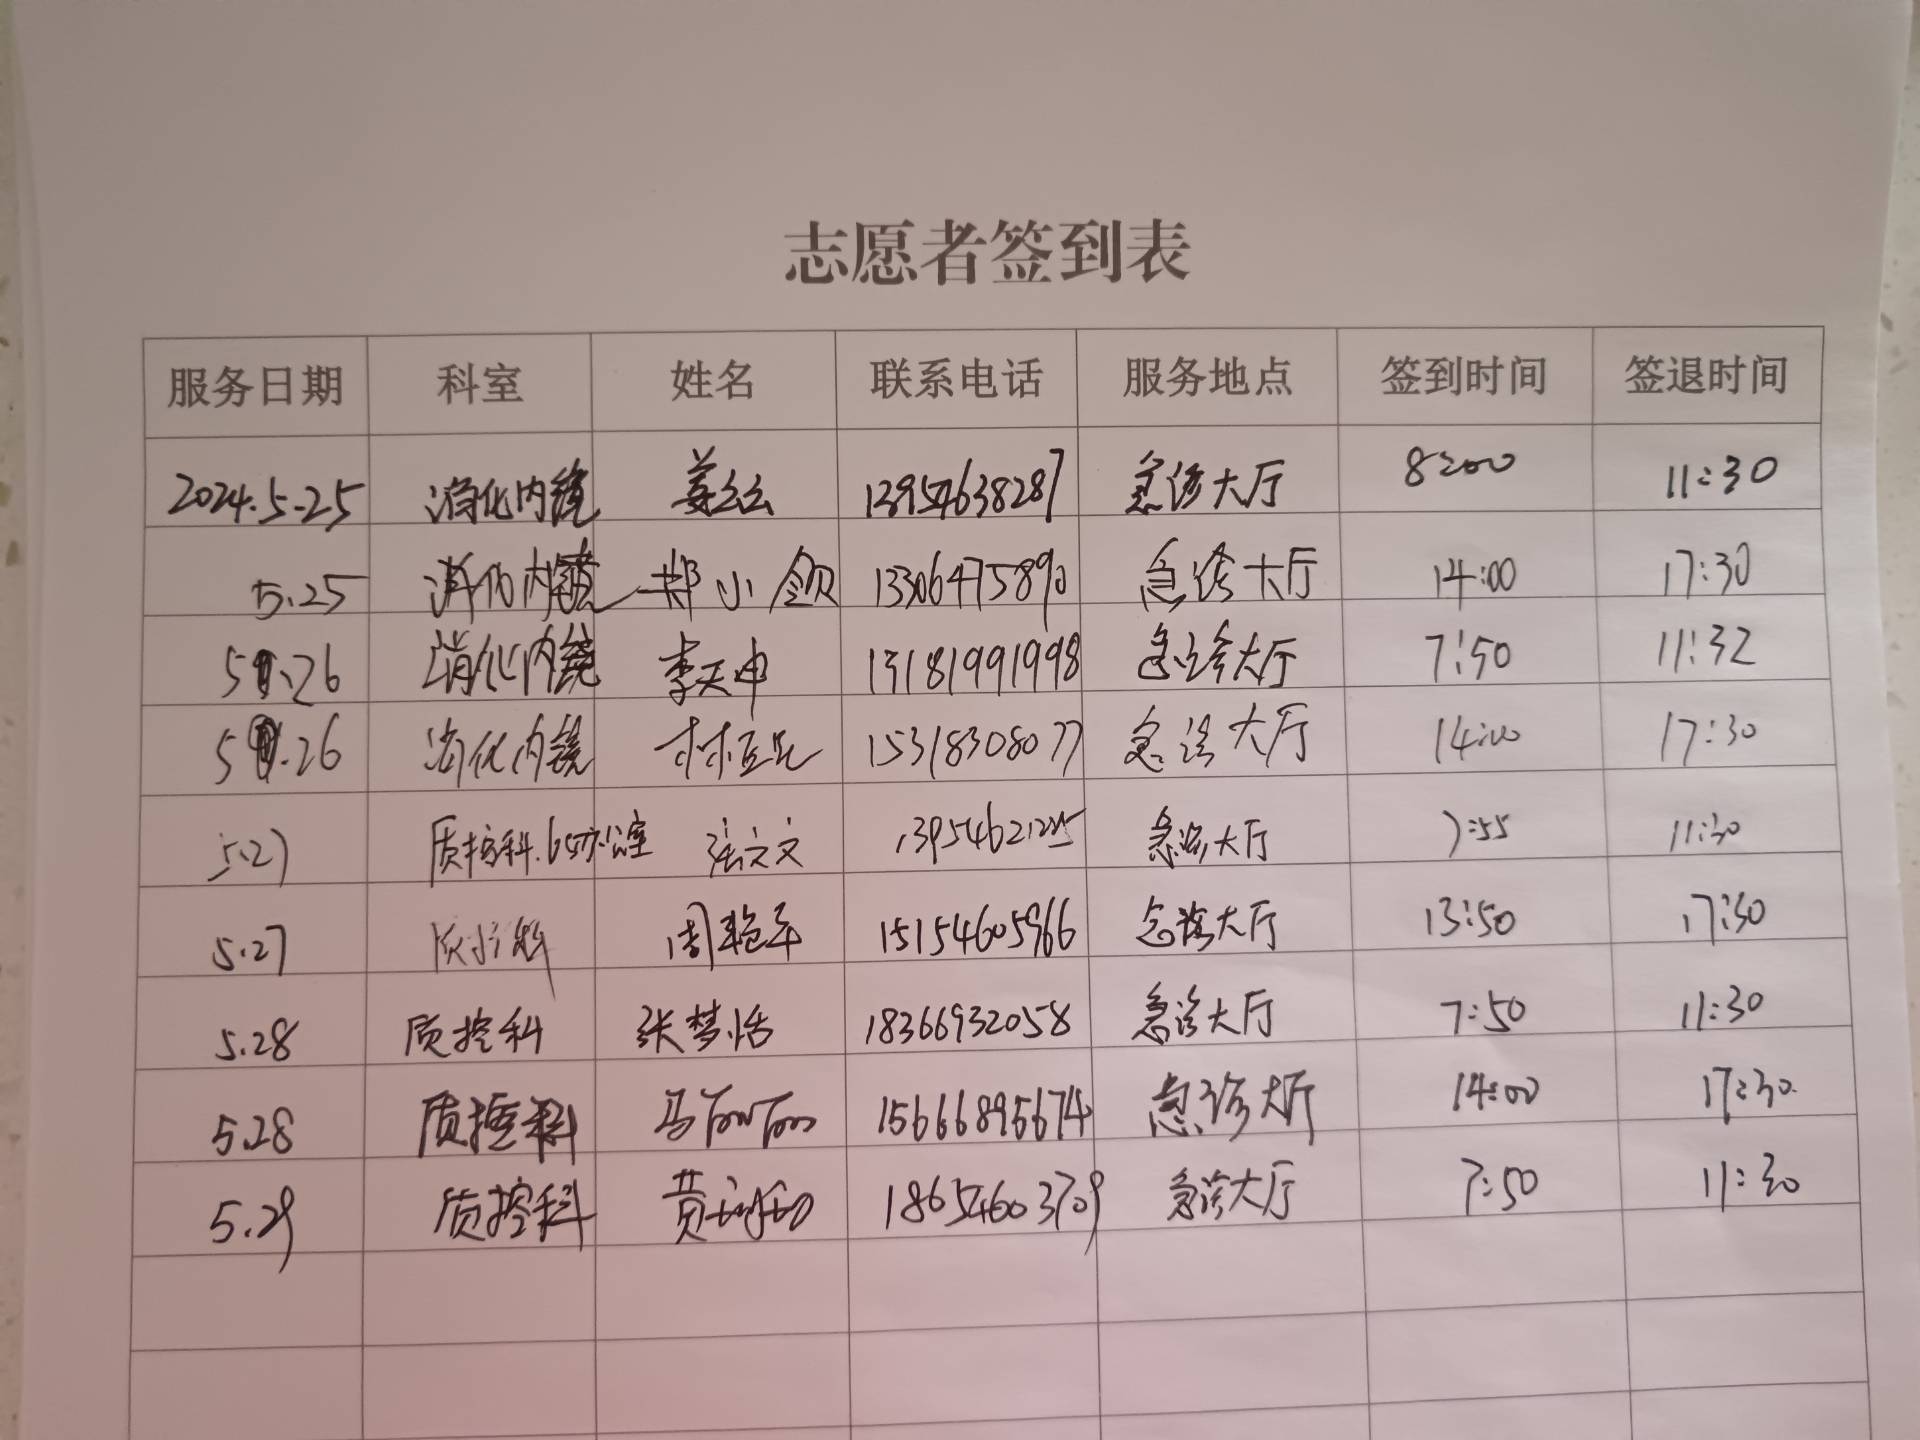 志愿者签到表
服务日期 科室 姓名 联系电话 服务地点 签到时间 签退时间
2024.5.25 消化内镜 姜么么 13954638287 急诊大厅 8:00 11:30
5.25 消化内镜 郑小 13306475890 急诊大厅 14:00 17:30
5.26 消化内镜 李天申 13181991998 急诊大厅 7:50 11:32
5.26 消化内镜 15318308077 急诊大厅 14:00 17:30
5.27 质控科.65办公室 张文文 急诊大厅 7:55 11:30
5.27 质控科 周艳军 15154605966 急诊大厅 13:50 17:30
5.28 质控科 张梦恬 18366932058 急诊大厅 7:50 11:30
5.28 质控科 马丽丽 15666895674 急诊大厅 14:00 17:30
5.29 质控科 黄 18654603709 急诊大厅 7:50 11:30